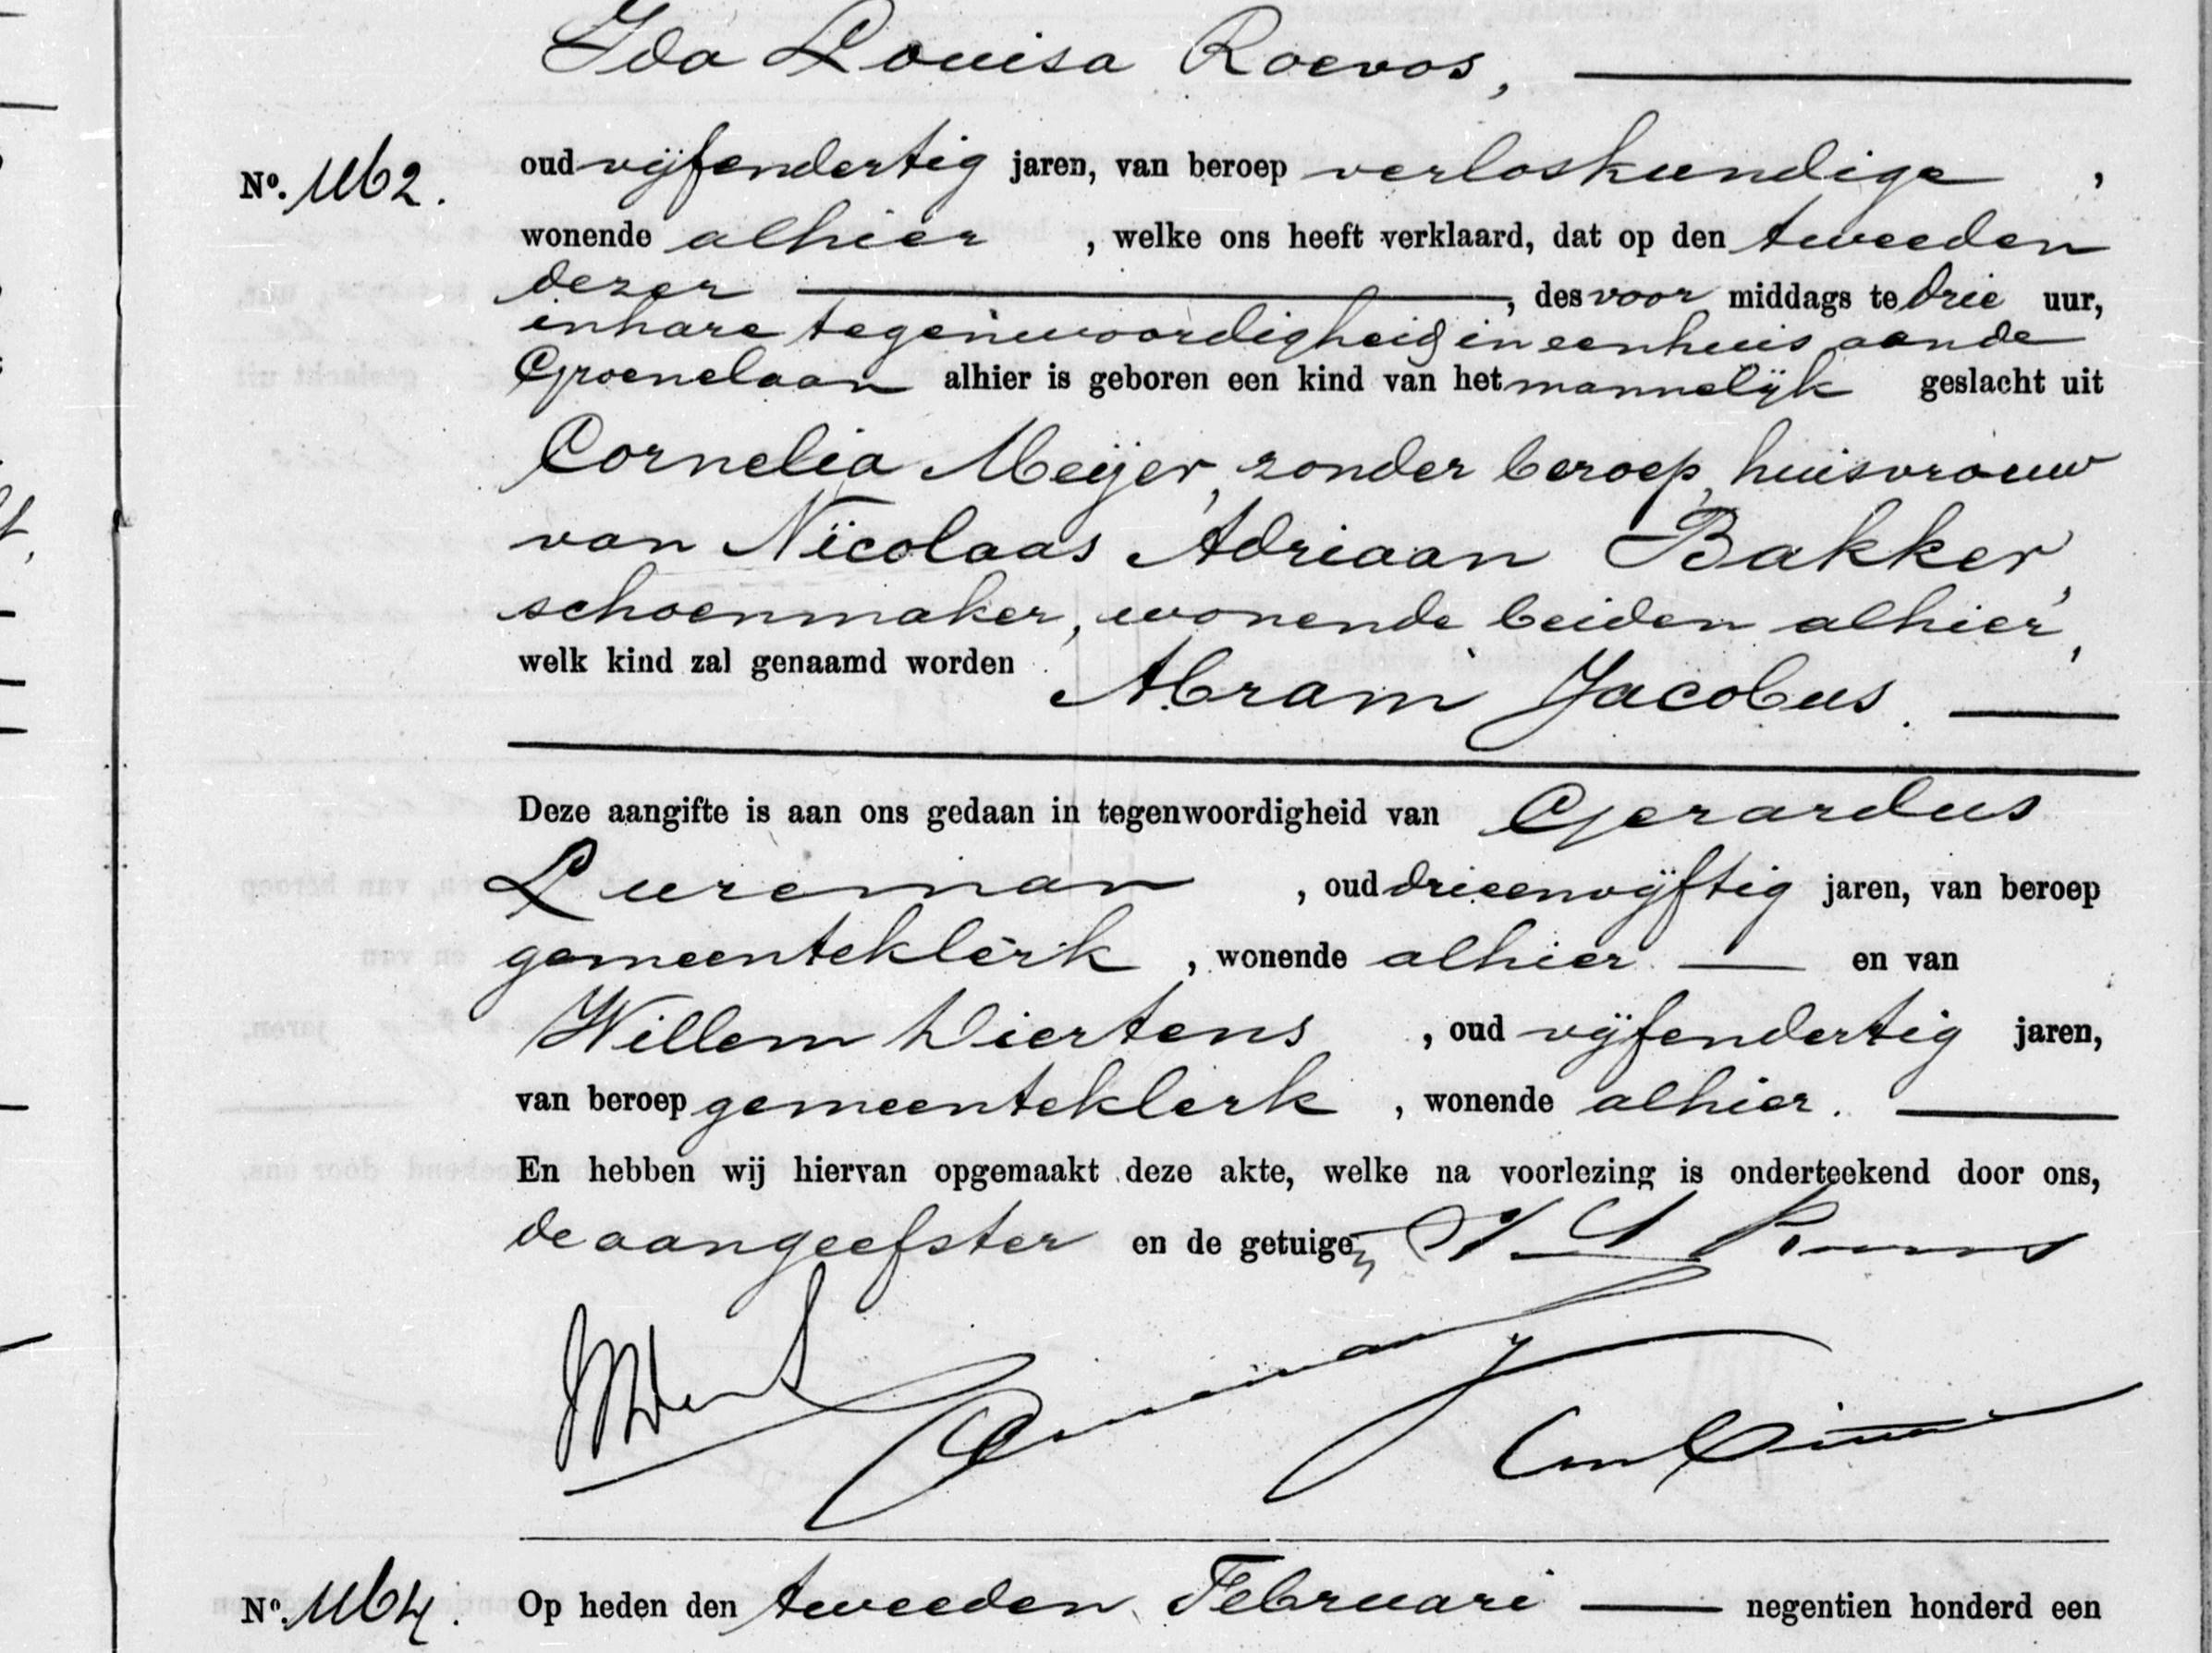 Ida Louisa Roevos,
No. 1162. oud vijfendertig jaren, van beroep verloskundige,
wonende alhier, welke ons heeft verklaard, dat op den tweeden
dezer, des voor middags te drie uur,
in hare tegenwoordigheid in een huis aan de
Groenelaan alhier is geboren een kind van het mannelijk geslacht uit
Cornelia Meijer, zonder beroep, huisvrouw
van Nicolaas Adriaan Bakker,
schoenmaker, wonende beiden alhier,
welk kind zal genaamd worden Abram Jacobus.
Deze aangifte is aan ons gedaan in tegenwoordigheid van Gerardus
Lureman, oud drieenvijftig jaren, van beroep
gemeenteklerk, wonende alhier en van
Willem Wiertens, oud vijfendertig jaren,
van beroep gemeenteklerk, wonende alhier.
En hebben wij hiervan opgemaakt deze akte, welke na voorlezing is onderteekend door ons,
de aangeefster en de getuigen
No. 1164. Op heden den tweeden Februari negentien honderd een